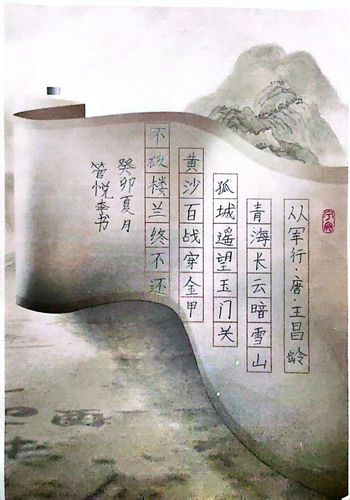 从军行·唐·王昌龄
青海长云暗雪山
孤城遥望玉门关
黄沙百战穿金甲
不破楼兰终不还
癸卯夏月
管悦李书